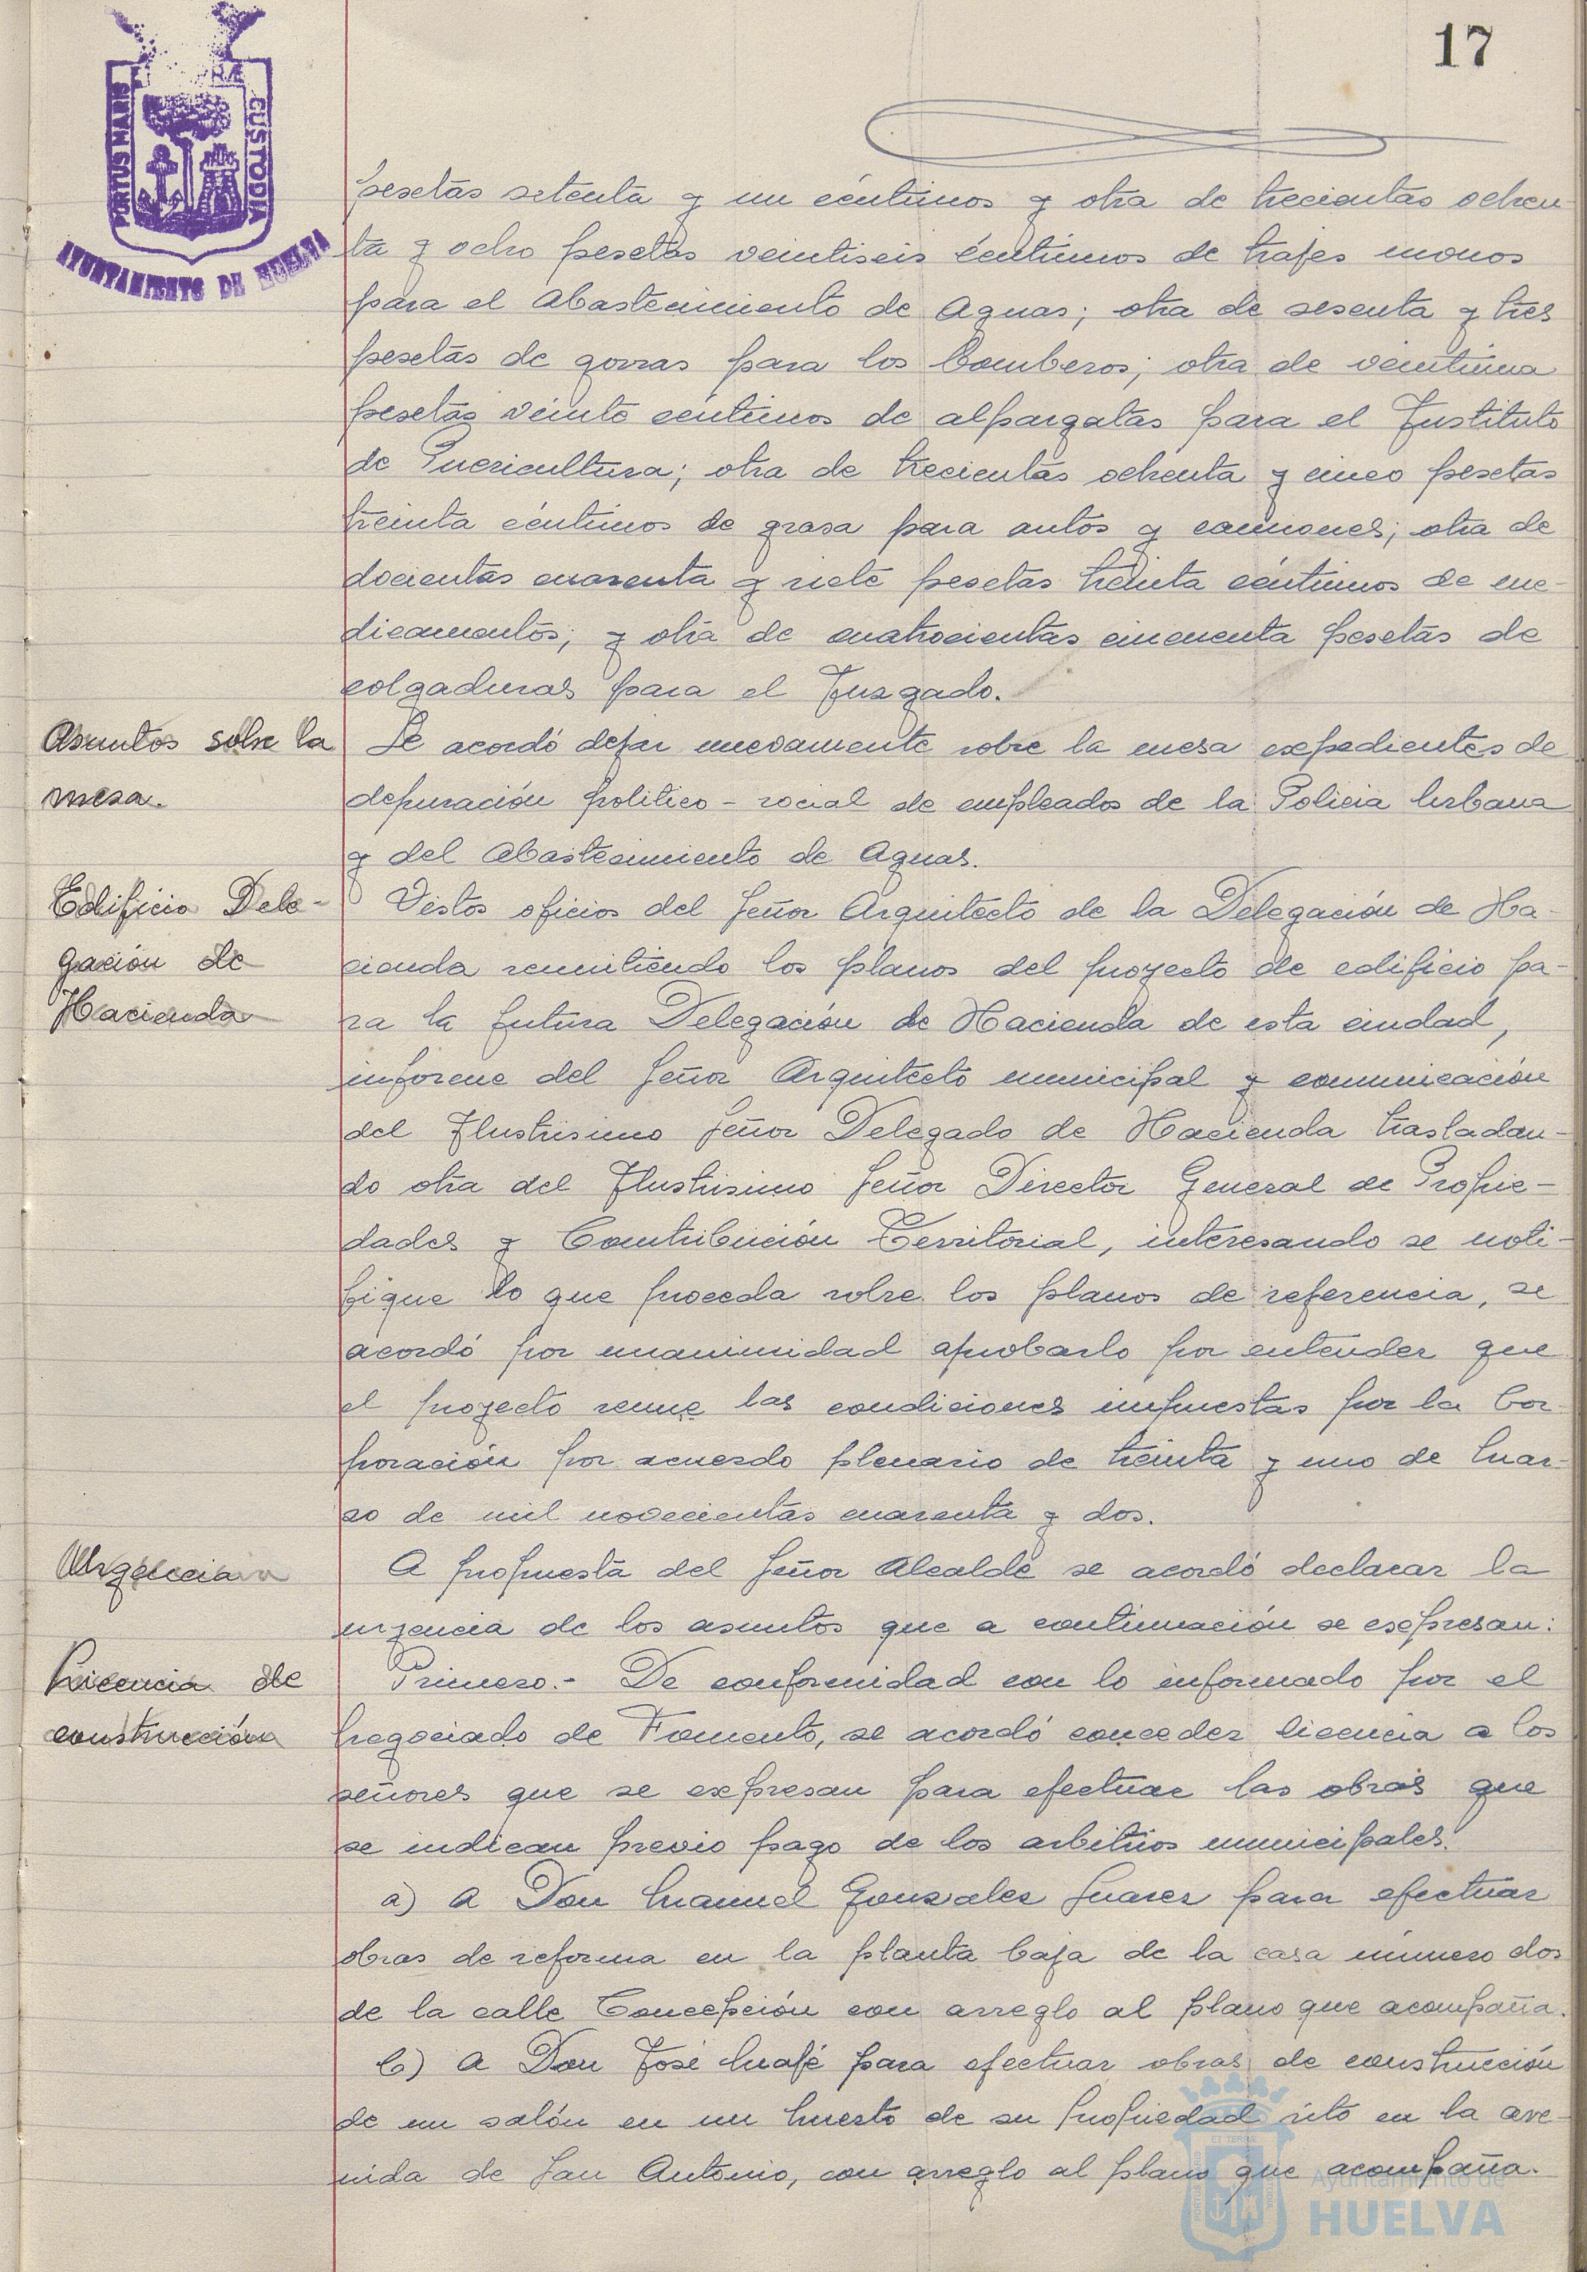 17
PORTUS MARIS CUSTODIA
AYUNTAMIENTO DE HUELVA
pesetas setenta y un céntimos y otra de trecientas ochen-
ta y ocho pesetas veintiseis céntimos de trajes monos
para el Abastecimiento de Aguas; otra de sesenta y tres
pesetas de gorras para los bomberos; otra de veintiuna
pesetas veinte céntimos de alpargatas para el Instituto
de Puericultura; otra de trecientas ochenta y cinco pesetas
treinta céntimos de grasa para autos y camiones; otra de
docientas cuarenta y siete pesetas treinta céntimos de me-
dicamentos; y otra de cuatrocientas cincuenta pesetas de
colgaduras para el Juzgado.
Asuntos sobre la
mesa.
Se acordó dejar nuevamente sobre la mesa expedientes de
depuración politico-social de empleados de la Policia Urbana
y del Abastecimiento de Aguas.
Edificio Dele-
gación de
Hacienda
Vistos oficios del Señor Arquitecto de la Delegación de Ha-
cienda remitiendo los planos del proyecto de edificio pa-
ra la futura Delegación de Hacienda de esta ciudad,
informe del Señor Arquitecto municipal y comunicación
del Ilustrisimo Señor Delegado de Hacienda trasladan-
do otra del Ilustrisimo Señor Director General de Propie-
dades y Contribución Territorial, interesando se noti-
fique lo que proceda sobre los planos de referencia, se
acordó por unanimidad aprobarlo por entender que
el proyecto reune las condiciones impuestas por la Cor-
poración por acuerdo plenario de treinta y uno de Mar-
zo de mil novecientas cuarenta y dos.
Urgencia
A propuesta del Señor Alcalde se acordó declarar la
urgencia de los asuntos que a continuación se expresan:
Licencia de
construcción
Primero.- De conformidad con lo informado por el
Negociado de Fomento, se acordó conceder licencia a los
señores que se expresan para efectuar las obras que
se indican previo pago de los arbitrios municipales.
a) A Don Manuel Gonzalez Suarez para efectuar
obras de reforma en la planta baja de la casa número dos
de la calle Concepción con arreglo al plano que acompaña.
b) A Don José Mafé para efectuar obras de construcción
de un salón en un huerto de su propiedad sito en la ave-
nida de San Antonio, con arreglo al plano que acompaña.
Ayuntamiento de
HUELVA